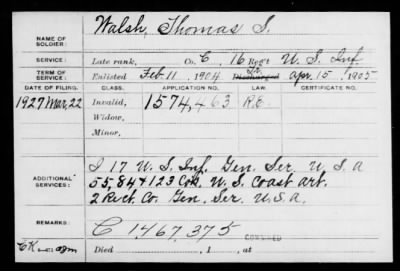 Walsh, Thomas S.
NAME OF SOLDIER:
SERVICE: Late rank, Co. C, 16 Reg't U. S. Inf.
TERM OF SERVICE: Enlisted Feb. 11, 1904 Discharged Tr. Apr. 15, 1905
DATE OF FILING. CLASS. APPLICATION NO. LAW. CERTIFICATE NO.
1927 Mar, 22 Invalid, 1574,463
Widow,
Minor,
I 17 U. S. Inf. Gen. Ser. U. S. A
ADDITIONAL SERVICES: 55, 84 & 123 Cos. U. S. Coast Art.
2 Rect. Co. Gen. Ser. U.S.A.
REMARKS: C 1,467,375
Died , 1 , at